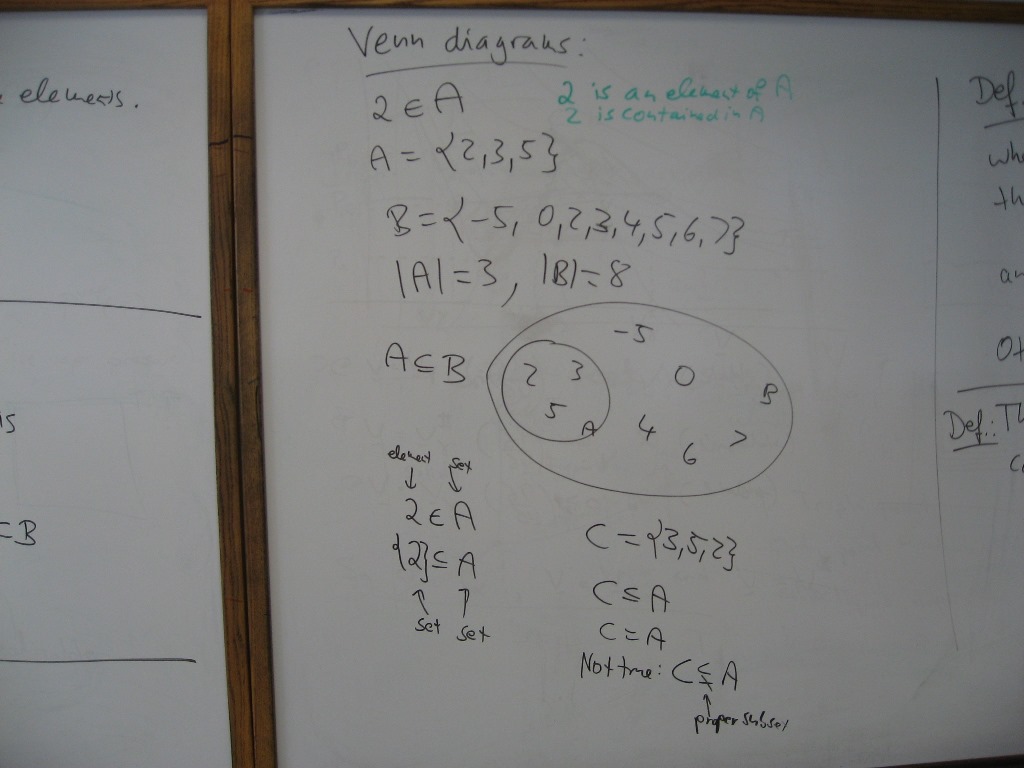 elements.
=B
Venn diagrams:
2 ∈ A
2 is an element of A
2 is contained in A
A = {2,3,5}
B = {-5, 0,2,3,4,5,6,7}
|A|=3, |B|=8
A ⊆ B
-5
2 3 0 B
5 A 4 6 7
element set
↓ ↓
2 ∈ A
{2} ⊆ A
↑ ↑
set set
C = {3,5,2}
C ⊆ A
C = A
Not true: C ⊊ A
↑
proper subset
Def.
Def.: